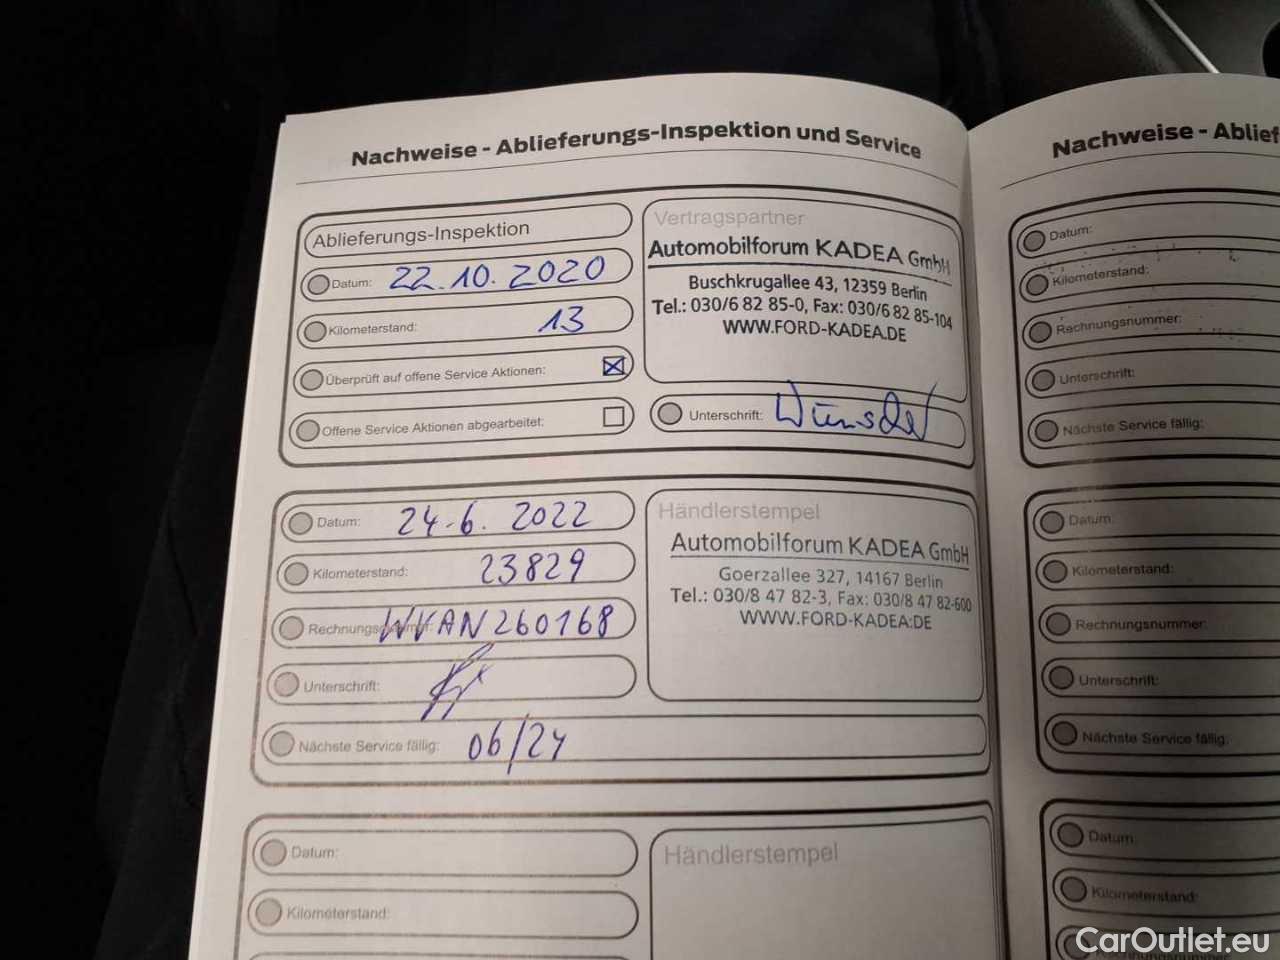 Nachweise - Ablieferungs-Inspektion und Service
Ablieferungs-Inspektion
Datum: 22.10.2020
Kilometerstand: 13
Überprüft auf offene Service Aktionen:
Offene Service Aktionen abgearbeitet:
Vertragspartner
Automobilforum KADEA GmbH
Buschkrugallee 43, 12359 Berlin
Tel.: 030/6 82 85-0, Fax: 030/6 82 85-104
WWW.FORD-KADEA.DE
Unterschrift:
Datum: 24.6. 2022
Kilometerstand: 23829
Rechnungsnummer: WVAN260168
Unterschrift:
Nächste Service fällig: 06/24
Händlerstempel
Automobilforum KADEA GmbH
Goerzallee 327, 14167 Berlin
Tel.: 030/8 47 82-3, Fax: 030/8 47 82-600
WWW.FORD-KADEA.DE
Datum:
Kilometerstand:
Händlerstempel
Nachweise - Ablief
Datum:
Kilometerstand:
Rechnungsnummer:
Unterschrift:
Nächste Service fällig:
Datum:
Kilometerstand:
Rechnungsnummer:
Unterschrift:
Nächste Service fällig:
Datum:
Kilometerstand:
Rechnungsnummer
CarOutlet.eu